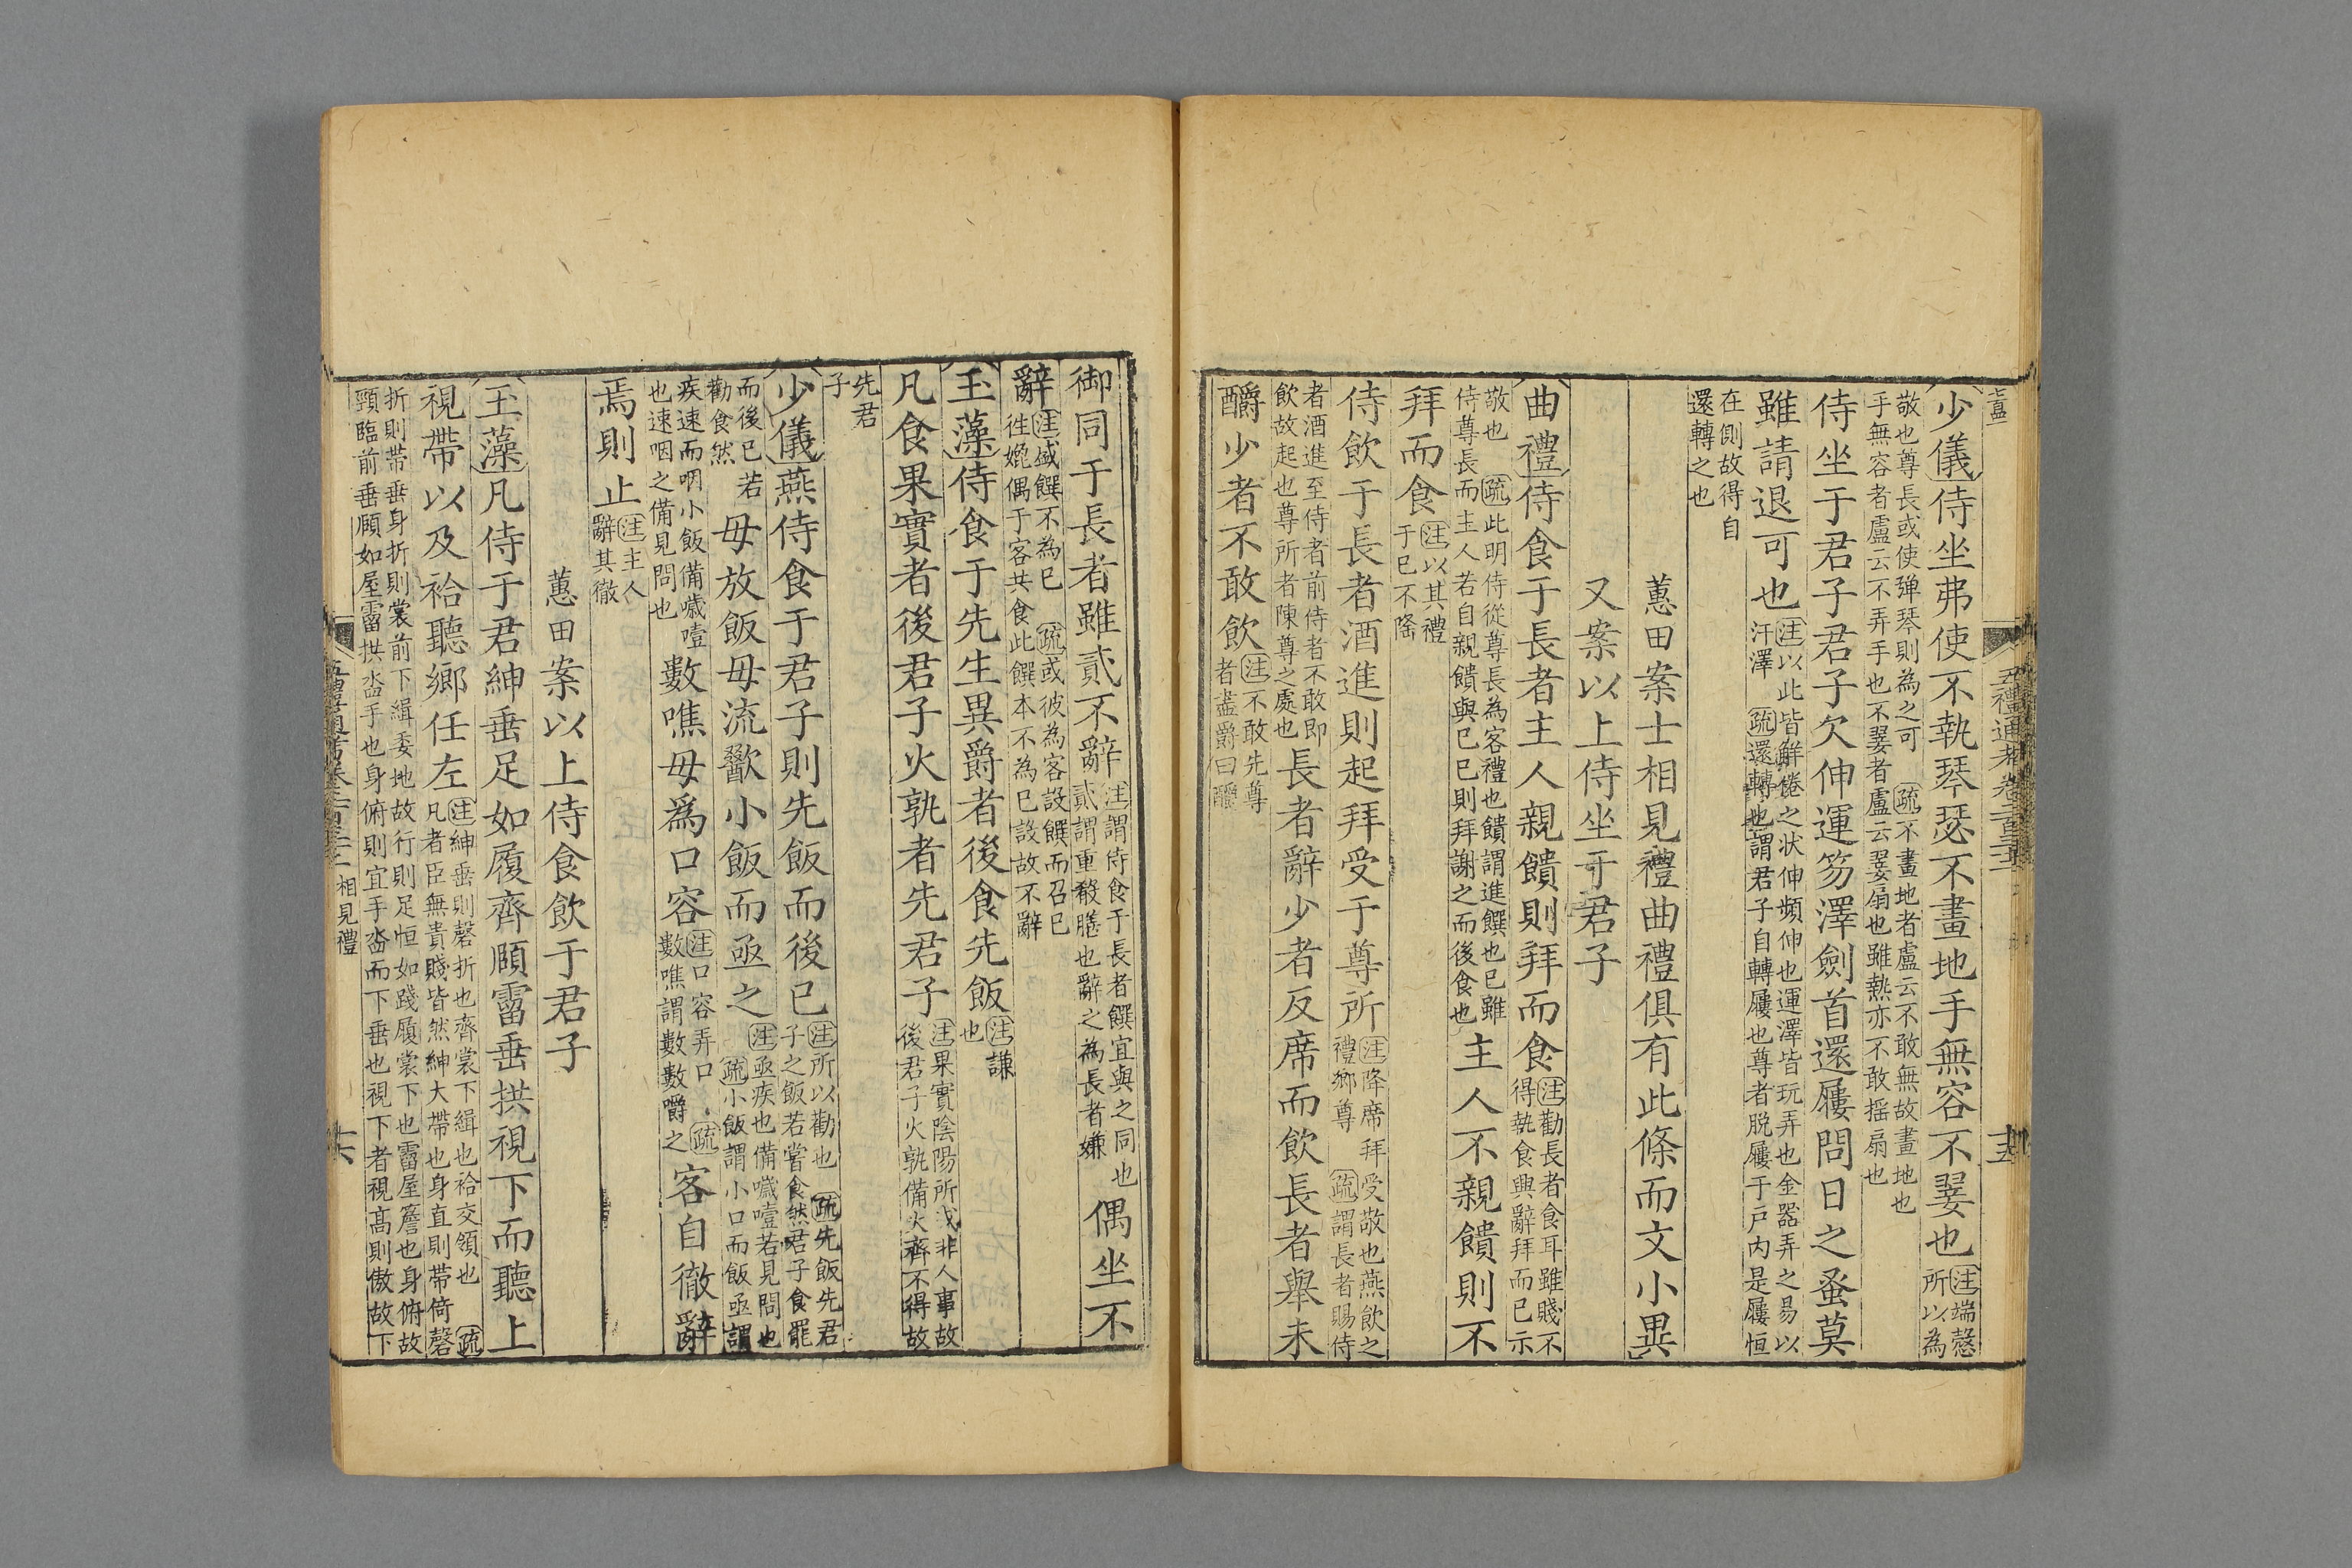 少儀侍坐弗使不執琴瑟不畫地手無容不翣也注端慤所以為
敬也尊長或使彈琴則為之可 疏不畫地者盧云不敢無故畫地也手無容者盧云不弄手也不翣者盧云翣扇也雖熱亦不敢搖扇也
侍坐于君子君子欠伸運笏澤劍首還屨問日之蚤莫
雖請退可也注以此皆解倦之狀伸頻伸也運澤皆玩弄也金器弄之易以汗澤 疏還轉也謂君子自轉屨也尊者脱屨于戸内是屨恒
在側故得自還轉之也
蕙田案士相見禮曲禮俱有此條而文小異
又案以上侍坐于君子
曲禮侍食于長者主人親饋則拜而食注勸長者食耳雖賤不得執食興辭拜而已示
敬也 疏此明侍從尊長為客禮也饋謂進饌也已雖侍尊長而主人若自親饋與已已則拜謝之而後食也主人不親饋則不
拜而食注以其禮于已不隆
侍飲于長者酒進則起拜受于尊所注降席拜受敬也燕飲之禮鄉尊 疏謂長者賜侍
者酒進至侍者前侍者不敢即飲故起也尊所者陳尊之處也長者辭少者反席而飲長者舉未
釂少者不敢飲注不敢先尊者盡爵曰釂
五禮通考卷二百三十二
十五
御同于長者雖貳不辭注謂侍食于長者饌宜與之同也貳謂重殽膳也辭之為長者嫌偶坐不
辭注盛饌不為已 疏或彼為客設饌而召已往媲偶于客共食此饌本不為已設故不辭
玉藻侍食于先生異爵者後食先飯注謙也
凡食果實者後君子火孰者先君子注果實陰陽所成非人事故後君子火孰備火齊不得故
先君子
少儀燕侍食于君子則先飯而後已注所以勸也 疏先飯先君子之飯若嘗食然君子食罷
而後已若勸食然毋放飯毋流歠小飯而亟之注亟疾也備噦噎若見問也 疏小飯謂小口而飯亟謂
疾速而咽小飯備噦噎也速咽之備見問也數噍毋爲口容注口容弄口 疏數噍謂數數嚼之客自徹辭
焉則止注主人辭其徹
蕙田案以上侍食飲于君子
玉藻凡侍于君紳垂足如履齊頤霤垂拱視下而聽上
視帶以及袷聽鄉任左注紳垂則磬折也齊裳下緝也袷交領也 疏凡者臣無貴賤皆然紳大帶也身直則帶倚磬
折則帶垂身折則裳前下緝委地故行則足恒如踐履裳下也霤屋簷也身俯故頸臨前垂頤如屋霤拱沓手也身俯則宜手沓而下垂也視下者視高則傲故下
相見禮
十六